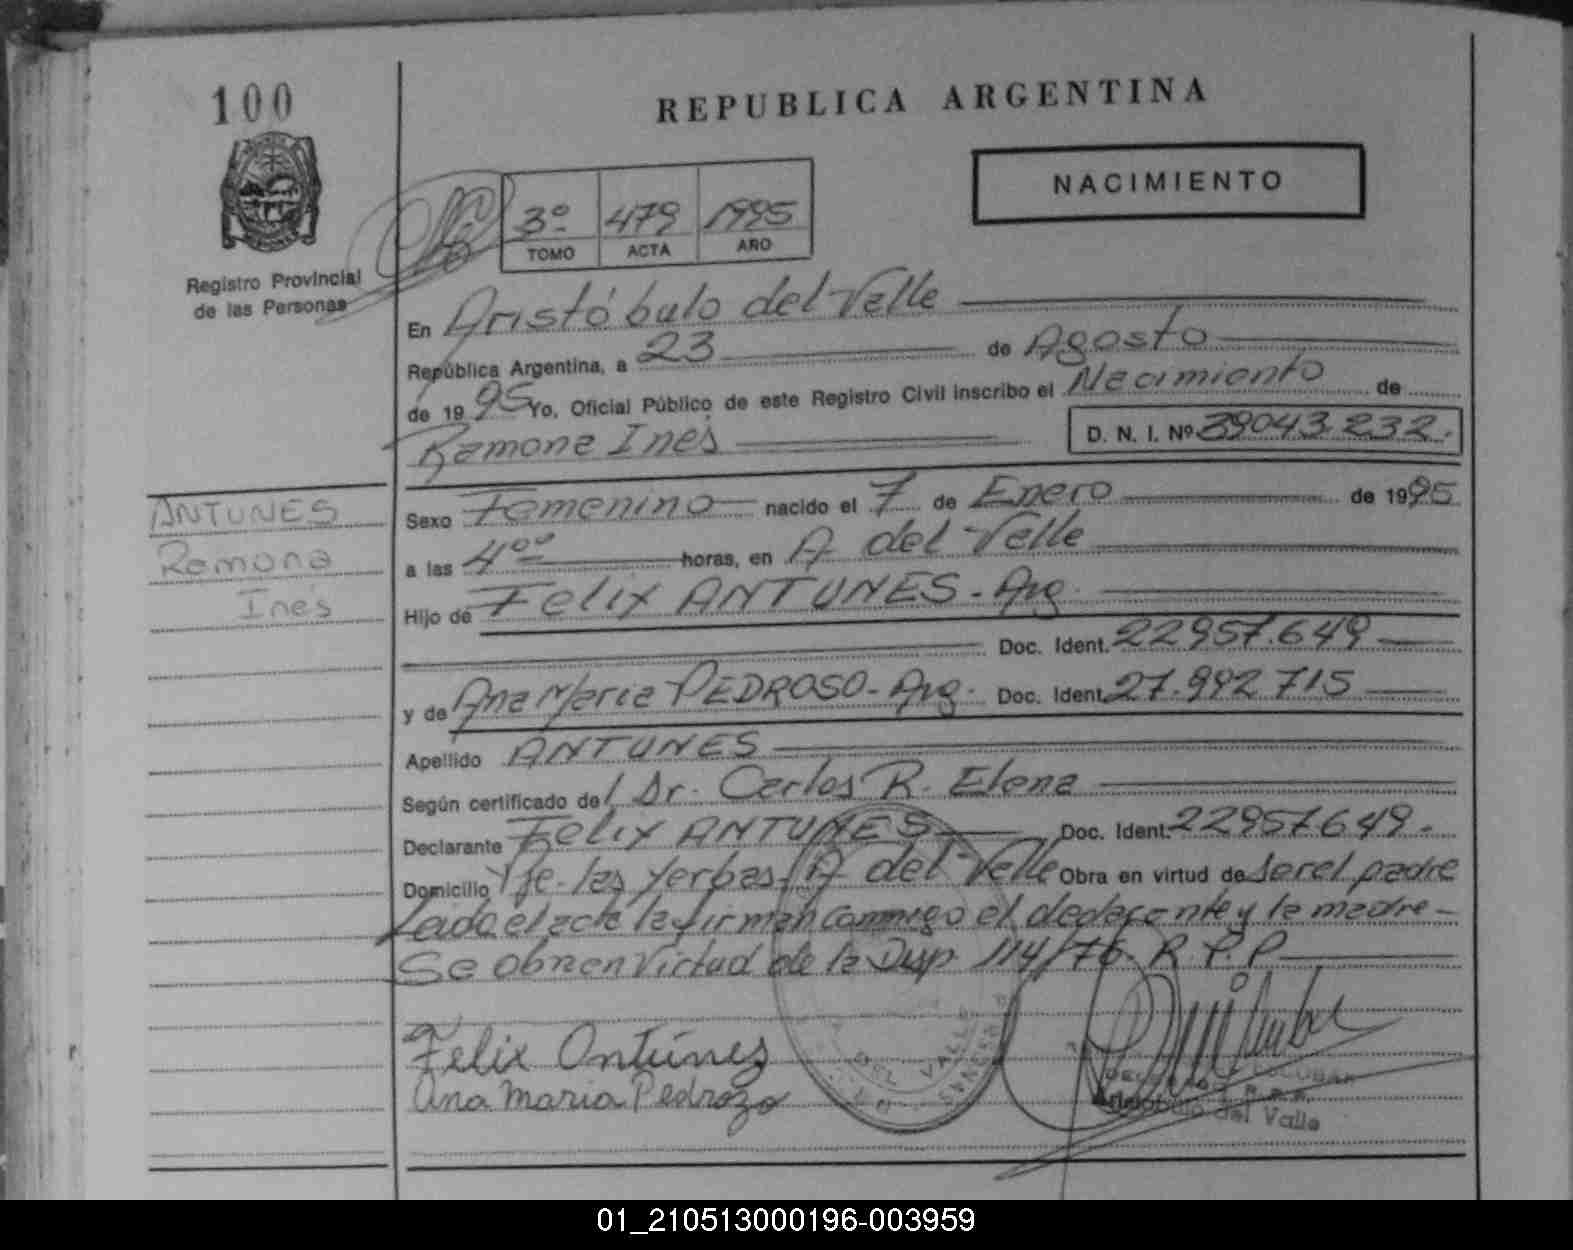 100
REPUBLICA ARGENTINA
NACIMIENTO
3º 479 1995
TOMO ACTA AÑO
Registro Provincial
de las Personas
En Aristóbulo del Valle
República Argentina, a 23 de Agosto
de 1995 Yo, Oficial Público de este Registro Civil inscribo el Nacimiento de
Ramona Inés D. N. I. Nº 39043232.
ANTUNES
Ramona
Inés
Sexo Femenino nacido el 7 de Enero de 1995
a las 4ºº horas, en A del Valle
Hijo de Felix ANTUNES - Arg.
Doc. Ident. 22957.649
y de Ana Maria PEDROSO - Arg. Doc. Ident. 27.992715
Apellido ANTUNES
Según certificado del Dr. Carlos R. Elena
Declarante Felix ANTUNES Doc. Ident. 22957649.
Domicilio Pje. las Yerbas A del Valle Obra en virtud de ser el padre
Leida el acta la firman conmigo el declarante y la madre -
Se obra en Virtud de la Disp. 114/76 R.P.P
Felix Antúnes
Ana Maria Pedrozo
DEL VALLE
ESCOBAR
Aristóbulo del Valle
01_210513000196-003959